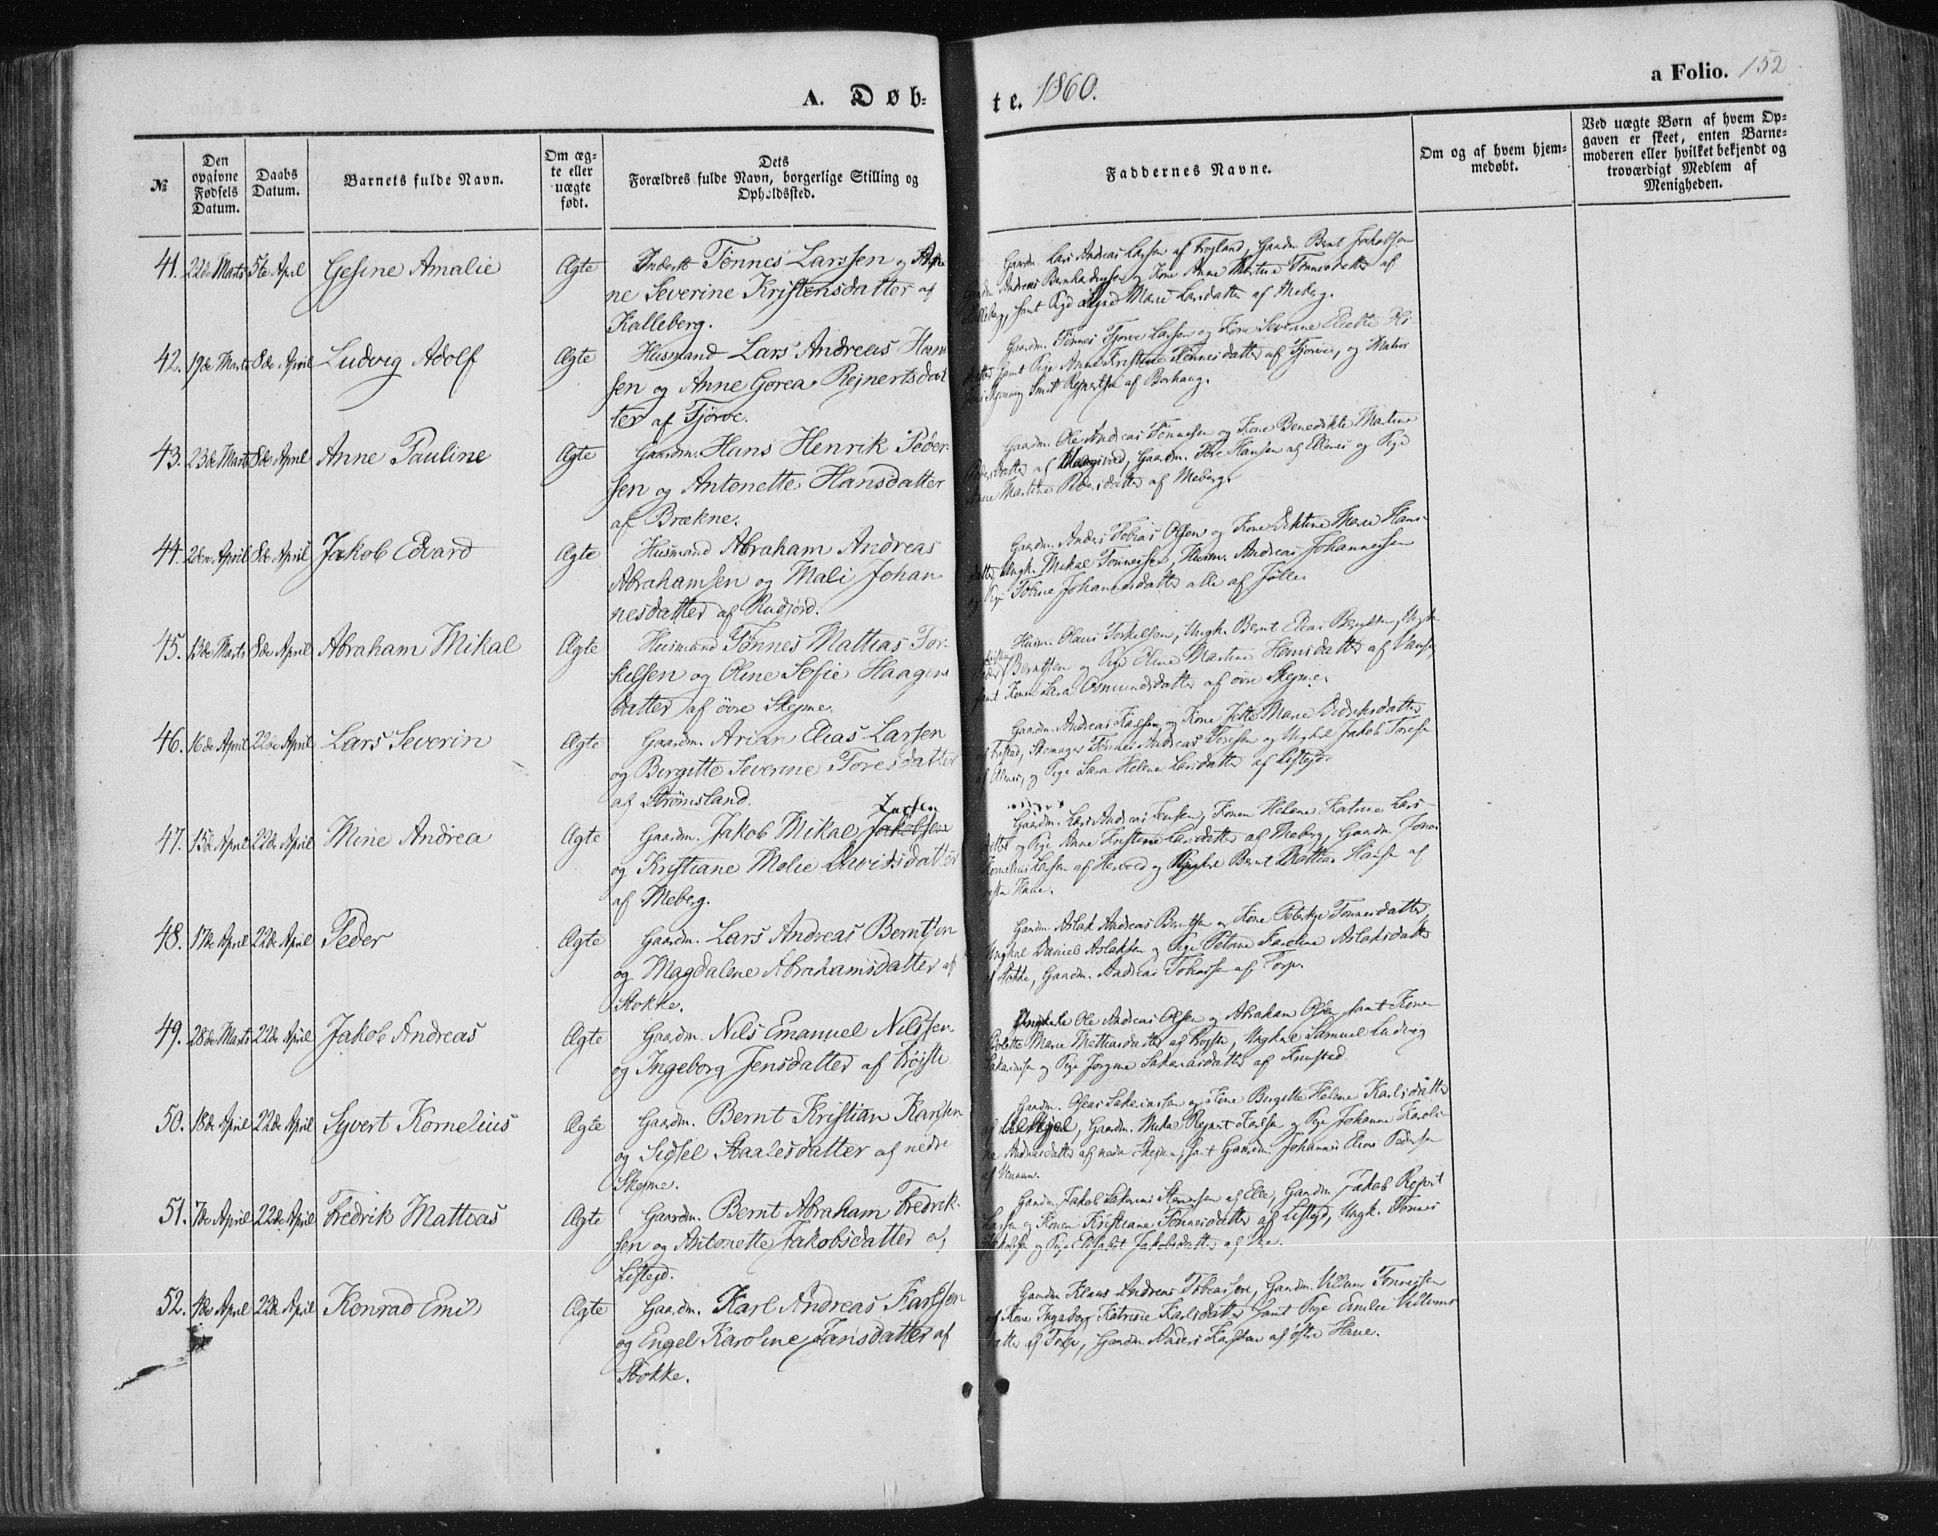 A. Døb-
te. 1860.
a Folio. 152
№
Den opgivne Fødsels Datum.
Daabs Datum.
Barnets fulde Navn.
Om ægte eller uægte født.
Dets
Forældres fulde Navn, borgerlige Stilling og
Opholdssted.
Faddernes Navne.
Om og af hvem hjem-
medøbt.
Ved uægte Børn af hvem Op-
gaven er skeet, enten Barne-
moderen eller hvilket bekjendt og
troværdigt Medlem af
Menigheden.
41. 22de Marts 5te April Gesine Amalie Ægte Inderst Tönnes Larssen og
ne Severine Kristensdatter af
Kalleberg.
Gaardm. Lars Andreas Larsen af Fogland, Gaardm. Bernt Jakobsen
Gaardm. Andreas Bernhardssen og Kone Anne Martine Tönnesdatter af
Kalleberg, samt Pige Marie Larsdatter af Meberg.
42. 19de Marts 8de April Ludvig Adolf Ægte Husmand Lars Andreas Han
sen og Anne Gorea Rejnertsdat
ter af Tjörve.
Gaardm. Tönnes Tjorve Larsen og Kone Severine
datter samt Pige Anne Kristine Tönnesdatter af Tjorve, og
Smit Rejnertsen af Borhaug.
43. 23de Marts 8de April Anne Pauline Ægte Gaardm. Hans Henrik Peder-
sen og Antonette Hansdatter
af Brækne.
Gaardm. Ole Andreas Tönnesen og Kone Benedikte Martine
Pedersdatter af Gaardm. Tore Hansen af Ellenes og Pige
Anne Martine Pedersdatter af Meberg.
44. 2den April 8de April Jakob Edvard Ægte Husmand Abraham Andreas
Abrahamsen og Mali Johan
nesdatter af Rudjord.
Gaardm. Anders Tobias Olsen og Kone Marie Hans-
datter, Ungk. Mikal Tönnessen, Husm. Andreas Johannessen
og Pige Tobine Johannesdatter alle af Jölle.
45. 13de Marts 8de April Abraham Mikal Ægte Husmand Tönnes Mattias Tor-
kelsen og Oline Sofie Haagens
datter af övre Skejme.
Husm. Olaus Torkelsen, Ungk. Bernt Elias Berntsen, Ungk.
Berntsen og Pige Oline Martine datter af Vanse,
samt Konen Sara Osmundsdatter af övre Skejme.
46. 16de April 22de April Lars Severin Ægte Gaardm. Arian Elias Larsen
og Birgitte Severine Toresdatter
af Strömsland.
Gaardm. Andreas Karlsen og Kone Jette Marie Didriksdatter
Tönnes Andreas Toresen og Ungkal Jakob Toresen
af Ellenes, og Pige Sara Helene Larsdatter af Listejd.
47. 15de April 22de April Mine Andrea Ægte Gaardm. Jakob Mikal Jakobsen Larsen
og Kristiane Malie Davidsdatter
af Meberg.
Gaardm. Lars Andreas Jensen, Konen Helene Katrine Lars-
datter og Pige Anne Kristine Larsdatter af Meberg, Gaardm. Jonas
Kornelius Larsen af Hervold og Ungkal Bernt Mattias Hansen af
Haue.
48. 17de April 22de April Peder Ægte Gaardm. Lars Andreas Berntsen
og Magdalene Abrahamsdatter af
Stokke.
Gaardm. Aslak Andreas Berntsen og Kone Tönnesdatter,
Ungkal Daniel Aslaksen og Pige Petrine Karoline Aslaksdatter
af Stokke, Gaardm. Andreas Tobiassen af Torp.
49. 28de Marts 22de April Jakob Andreas Ægte Gaardm. Nils Emanuel Nilssen
og Ingeborg Jensdatter af Tröjste
Ungkarle Ole Andreas Olsen og Abraham Olsen samt Konen
Marie Mattiasdatter af Ungkal Samuel Ludvig
Sakariasen og Pige Jorgine Sakariasdatter af
50. 18de April 22de April Syvert Kornelius Ægte Gaardm. Bernt Kristian Karlsen
og Sidsel Staalesdatter af nedre
Skejme.
Gaardm. Elias Sakariassen og Kone Birgitte Helene Karlsdatter
Gaardm. Mikal Rejnert Karlsen og Pige Johanne Karoli
ne Andreasdatter af nedre Skejme, samt Gaardm. Johannes Elias Pedersen
af Vennem.
51. 7de April 22de April Fredrik Mattias Ægte Gaardm. Bernt Abraham Fredrik-
sen og Antonette Jakobsdatter af
Listejd.
Gaardm. Jakob Sakarias af Elle, Gaardm. Jakob Rejert
Larsen og Konen Kristiane Tönnesdatter af Listejd, Ungk. Tönnes
og Pige Elisabet Jakobsdatter af
52. 4de April 22de April Konrad Emil Ægte Gaardm. Karl Andreas Karlsen
og Engel Karoline Jansdatter af
Stokke.
Gaardm. Klaus Andreas Tobiassen, Gaardm. Villum Tönnessen
og Kone Ingeborg Katrine Karlsdatter samt Pige Emilie Villums
datter af Torp, Gaardm. Anders Karlsen af östre Haue.